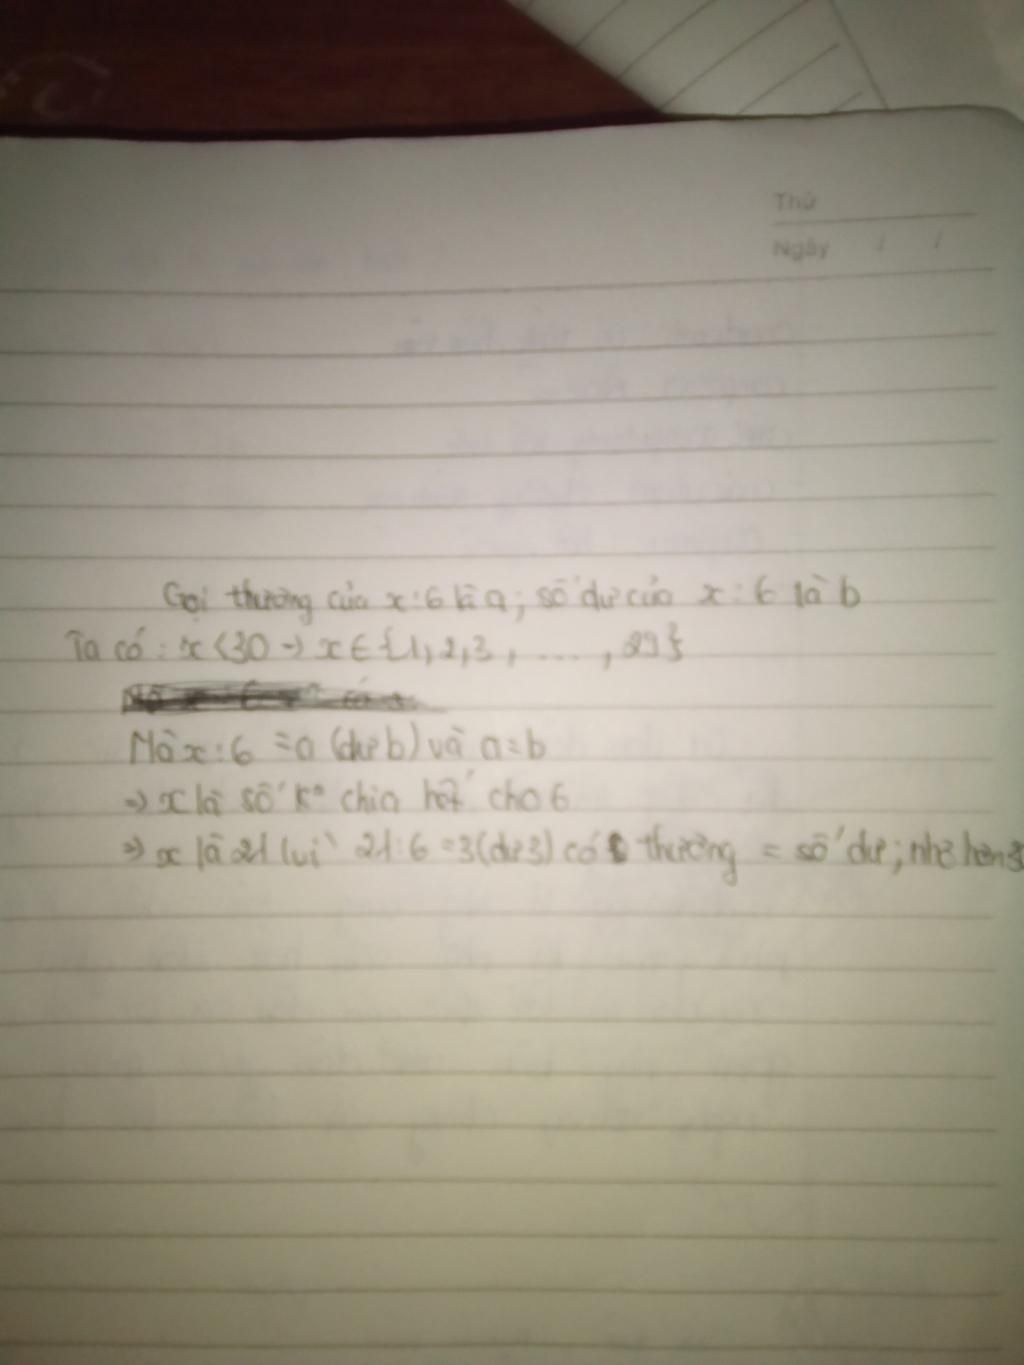 Thứ
Ngày / /
Gọi thương của x:6 là a; số dư của x:6 là b
Ta có: x<30 → x∈{1,2,3,...,29}
Mà x:6 =a (dư b) và a=b
⇒ x là số k° chia hết cho 6
⇒ x là 21 (vì 21:6=3(dư3) có thương = số dư; nhỏ hơn 3